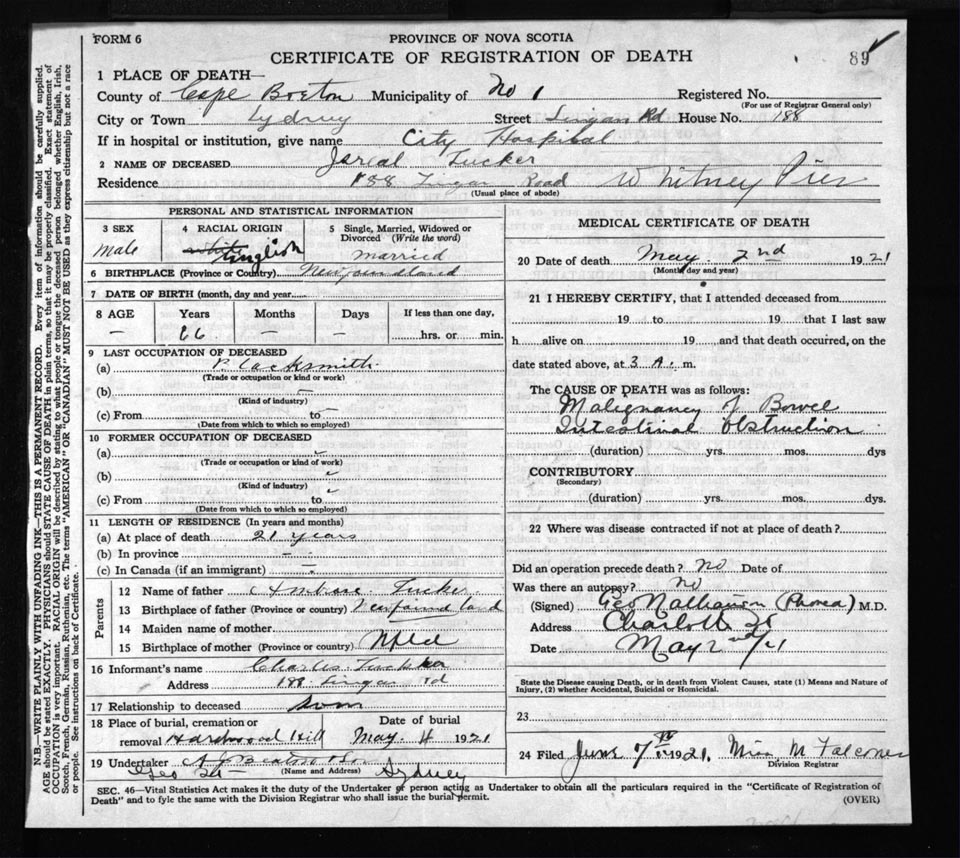 FORM 6
PROVINCE OF NOVA SCOTIA
CERTIFICATE OF REGISTRATION OF DEATH
89
1 PLACE OF DEATH—
County of Cape Breton Municipality of No 1 Registered No.
(For use of Registrar General only)
City or Town Sydney Street Lingan Rd House No. 188
If in hospital or institution, give name City Hospital
2 NAME OF DECEASED Tucker
Residence 188 Lingan Road Whitney Pier
(Usual place of abode)
PERSONAL AND STATISTICAL INFORMATION
3 SEX Male
4 RACIAL ORIGIN English
5 Single, Married, Widowed or Divorced (Write the word) married
6 BIRTHPLACE (Province or Country) Newfoundland
7 DATE OF BIRTH (month, day and year)
8 AGE Years Months Days If less than one day,
— 66 — — hrs. or min.
9 LAST OCCUPATION OF DECEASED
(a) Blacksmith
(Trade or occupation or kind or work)
(b) —
(Kind of industry)
(c) From to —
(Date from which to which so employed)
10 FORMER OCCUPATION OF DECEASED
(a)
(Trade or occupation or kind of work)
(b)
(Kind of industry)
(c) From to
(Date from which to which so employed)
11 LENGTH OF RESIDENCE (In years and months)
(a) At place of death 21 years
(b) In province —
(c) In Canada (if an immigrant) —
Parents
12 Name of father Ambrose Tucker
13 Birthplace of father (Province or country) Newfoundland
14 Maiden name of mother
15 Birthplace of mother (Province or country) Nfld
16 Informant's name Charles Tucker
Address 188 Lingan Rd
17 Relationship to deceased Son
18 Place of burial, cremation or removal Hardwood Hill
Date of burial May 4 1921
19 Undertaker
(Name and Address)
Geo St Sydney
MEDICAL CERTIFICATE OF DEATH
20 Date of death May 2nd 1921
(Month day and year)
21 I HEREBY CERTIFY, that I attended deceased from
19 to 19 that I last saw
h alive on 19 and that death occurred, on the
date stated above, at 3 A. m.
The CAUSE OF DEATH was as follows:
Malignancy of Bowel
Intestinal Obstruction
(duration) yrs. mos. dys
CONTRIBUTORY
(Secondary)
(duration) yrs. mos. dys.
22 Where was disease contracted if not at place of death?
Did an operation precede death? No Date of
Was there an autopsy? No
(Signed) Geo M.D.
Address Charlotte St
Date May 2nd/21
State the Disease causing Death, or in death from Violent Causes, state (1) Means and Nature of
Injury, (2) whether Accidental, Suicidal or Homicidal.
23
24 Filed June 7th 1921. Miss M Falconer
Division Registrar
SEC. 46—Vital Statistics Act makes it the duty of the Undertaker or person acting as Undertaker to obtain all the particulars required in the "Certificate of Registration of
Death" and to fyle the same with the Division Registrar who shall issue the burial permit.
(OVER)
N.B.—WRITE PLAINLY WITH UNFADING INK—THIS IS A PERMANENT RECORD. Every item of information should be carefully supplied.
AGE should be stated EXACTLY. PHYSICIANS should STATE CAUSE OF DEATH in plain terms, so that it may be properly classified. Exact statement of
OCCUPATION is very important. RACIAL ORIGIN will be described by stating to what people or tongue the deceased person belonged whether English, Irish,
Scotch, French, German, Russian, Ruthenian, etc. The terms "AMERICAN" OR "CANADIAN" MUST NOT BE USED as they express citizenship but not a race
or people. See instructions on back of Certificate.